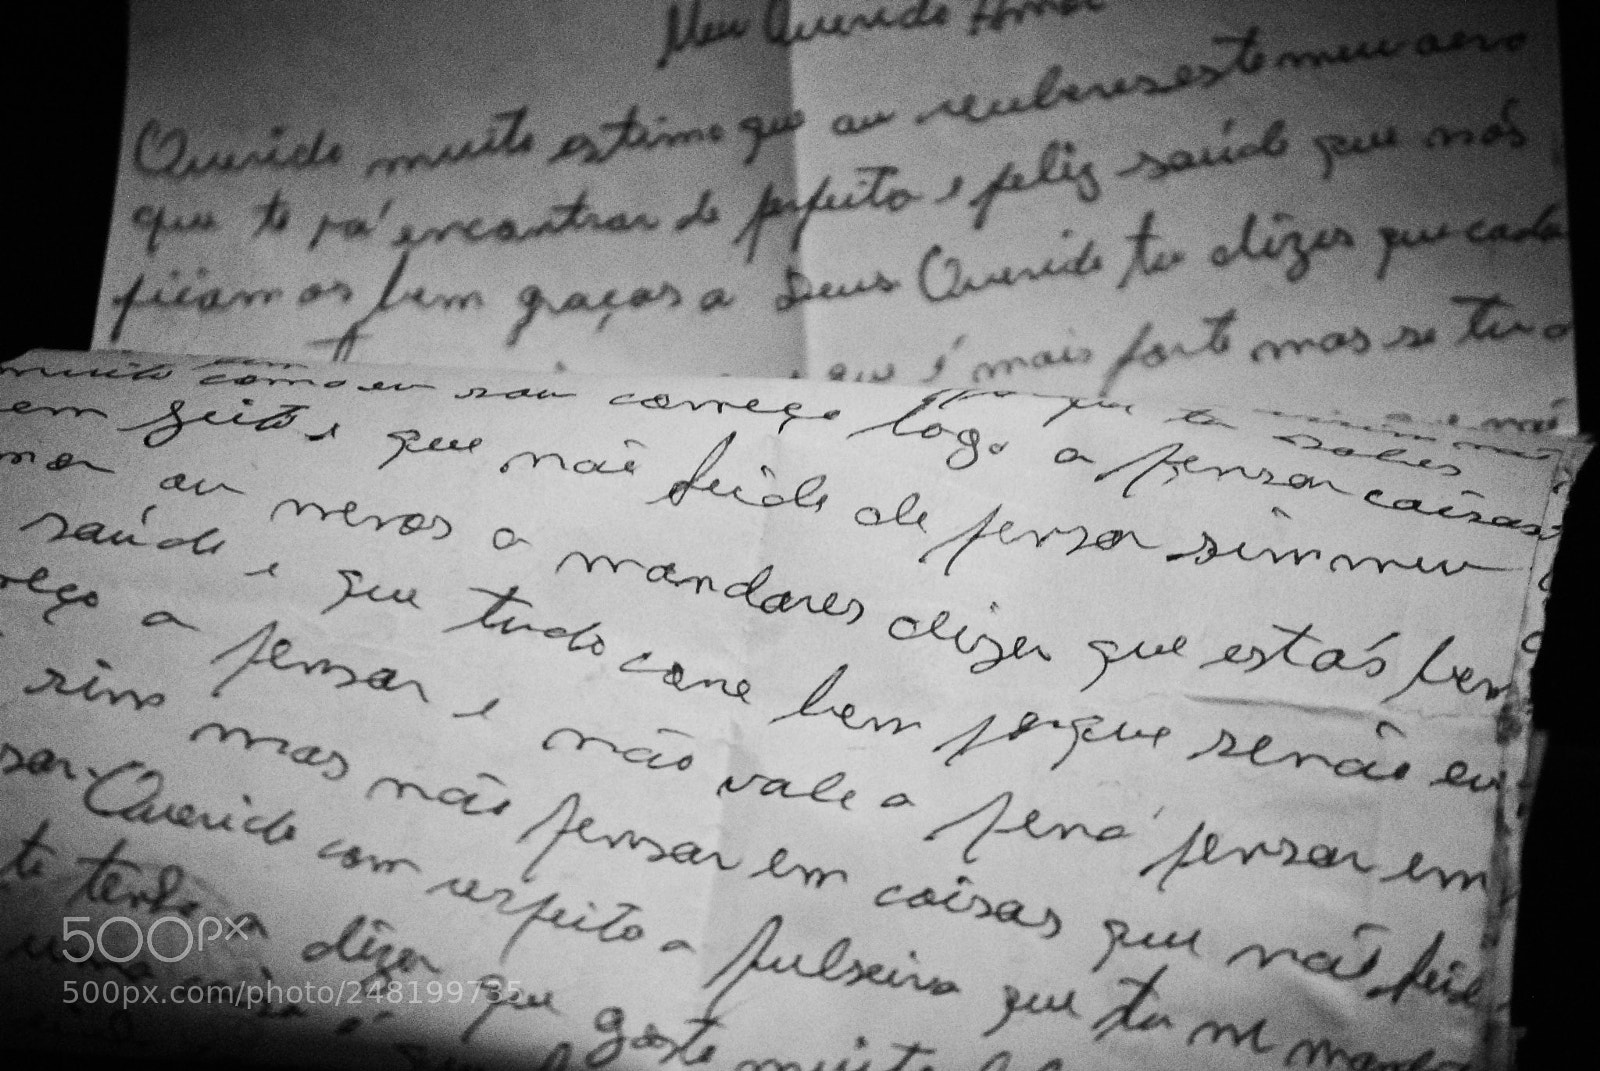 Meu Querido Amor
Querido muito estimo que au reseberes este meu aero
que te vá encontrar de perfeito e feliz saúde que nós
ficamos bem graças a Deus Querido tu dizes que cada
que é mais forte mas se tu o
muito como eu sou começo logo a pensar coisas
em geito e que não seide de pensar sim meu
mor au menos a mandares dizer que estás bem
saúde e que tudo corre bem porque senão eu
meço a pensar e não vale a pená pensar em
sim mas não pensar em coisas que não seide
sar. Querido com respeito a pulseira que tu me mandas
te tenho a dizer que gosto muito
uma coisa
500px
500px.com/photo/248199735